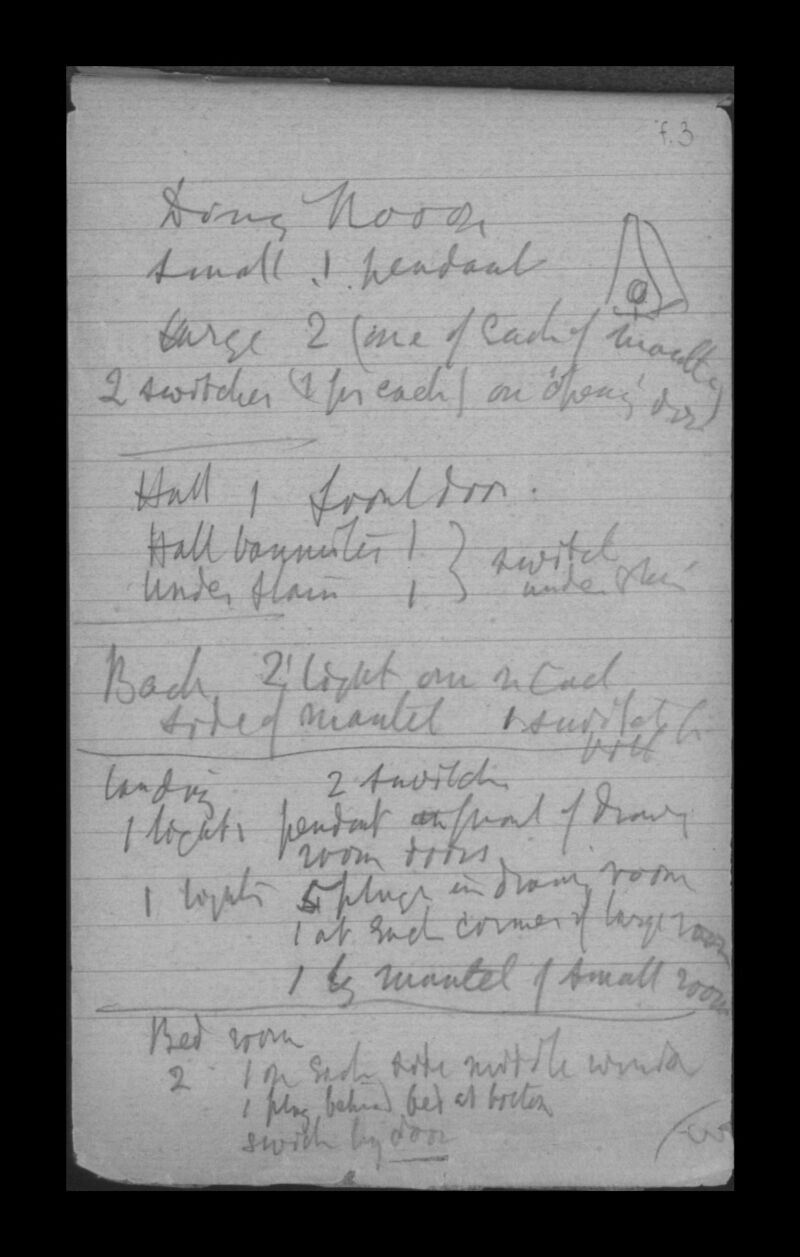 f.3
Dining Room
small 1 pendant
Large 2 (one of each of mantle)
2 switches (1 for each) on opening door
Hall 1 front door.
Hall bannister 1
Under stairs 1
switch
under stairs
Back 2 light one on each
side of mantel 1 switch
landing 2 switch
1 lights pendant in front of drawing
room doors
1 lights 5 plugs in drawing room
1 at each corner of large room
1 by mantel of small room
Bed room
2 1 on each side middle window
1 plug behind bed at bottom
switch by door